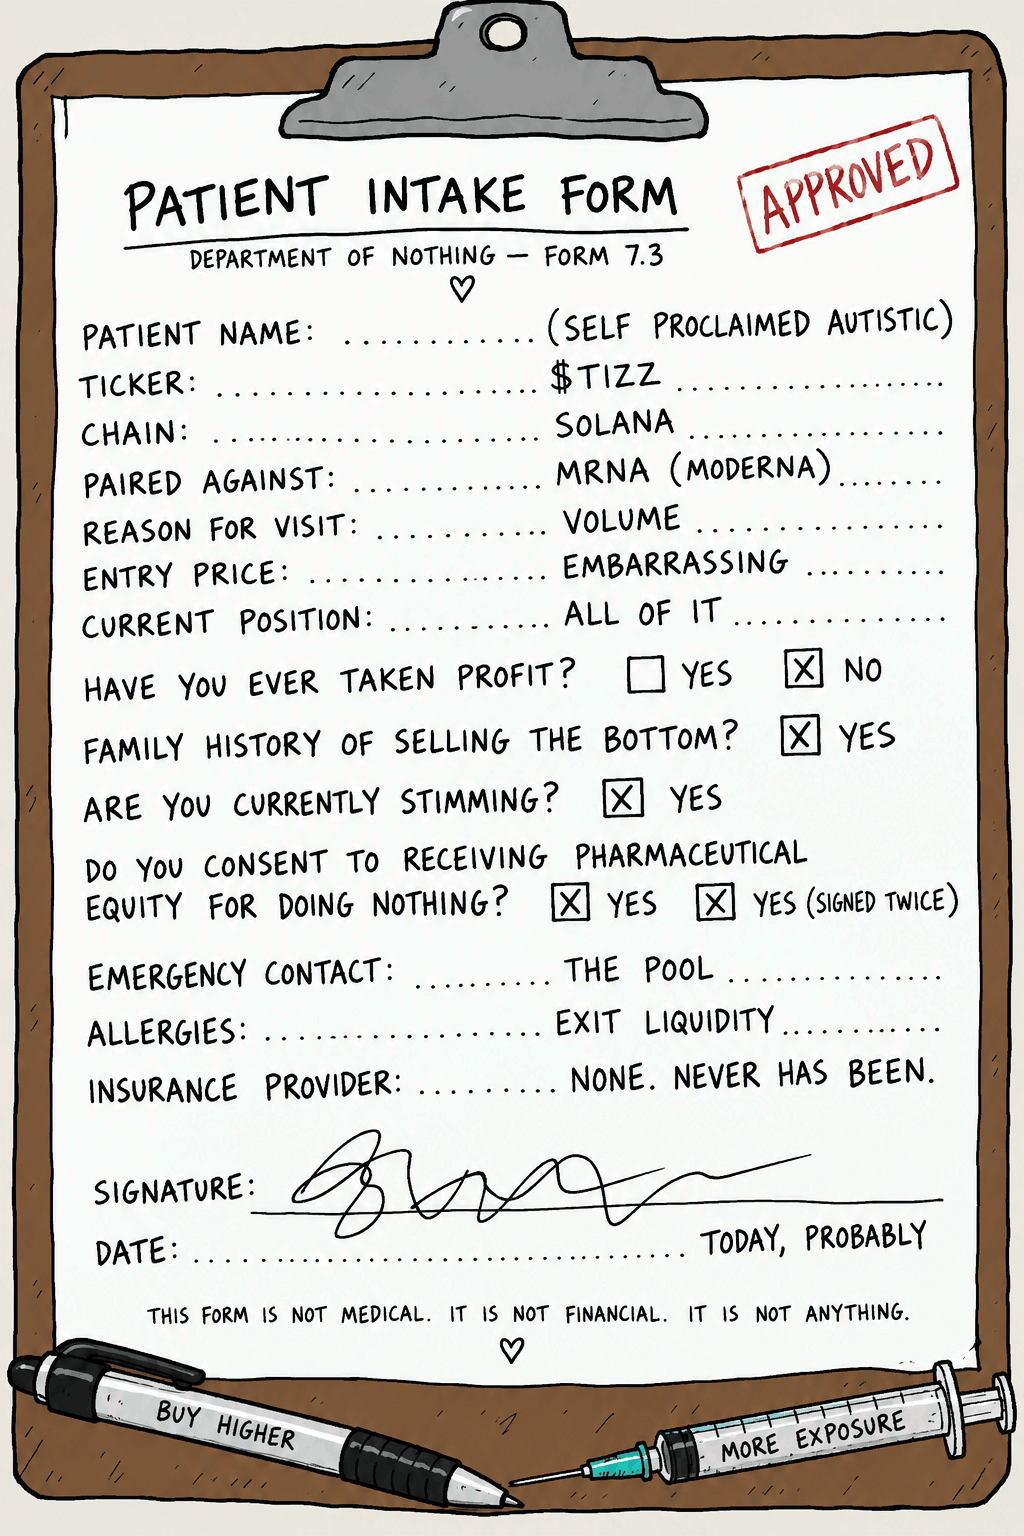 APPROVED
PATIENT INTAKE FORM
DEPARTMENT OF NOTHING — FORM 7.3
PATIENT NAME: ............ (SELF PROCLAIMED AUTISTIC)
TICKER: .................... $TIZZ .................
CHAIN: .................... SOLANA ................
PAIRED AGAINST: ............ MRNA (MODERNA) .......
REASON FOR VISIT: ........... VOLUME ................
ENTRY PRICE: ................ EMBARRASSING .........
CURRENT POSITION: ........... ALL OF IT ..............
HAVE YOU EVER TAKEN PROFIT? ☐ YES ☒ NO
FAMILY HISTORY OF SELLING THE BOTTOM? ☒ YES
ARE YOU CURRENTLY STIMMING? ☒ YES
DO YOU CONSENT TO RECEIVING PHARMACEUTICAL
EQUITY FOR DOING NOTHING? ☒ YES ☒ YES (SIGNED TWICE)
EMERGENCY CONTACT: ......... THE POOL ..............
ALLERGIES: .................. EXIT LIQUIDITY ...........
INSURANCE PROVIDER: ......... NONE. NEVER HAS BEEN.
SIGNATURE:
DATE: ................................ TODAY, PROBABLY
THIS FORM IS NOT MEDICAL. IT IS NOT FINANCIAL. IT IS NOT ANYTHING.
BUY HIGHER
MORE EXPOSURE